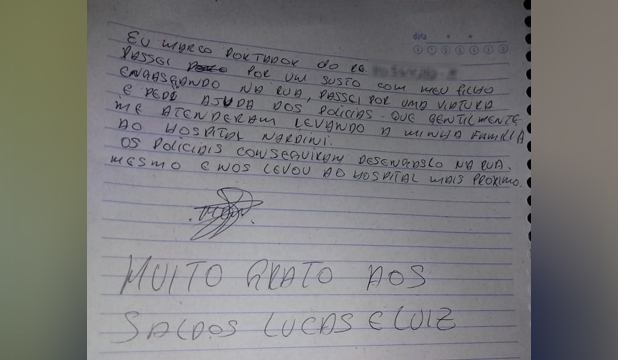 data
EU MARCO PORTADOR DO RG
PASSEI POR UM SUSTO COM MEU FILHO
ENGASGANDO NA RUA, PASSEI POR UMA VIATURA
E PEDI AJUDA DOS POLICIAS. QUE GENTILMENTE
ME ATENDERAM LEVANDO A MINHA FAMILIA
AO HOSPITAL NARDINI.
OS POLICIAIS CONSEGUIRAM DESENGASLO NA RUA.
MESMO E NOS LEVOU AO HOSPITAL MAIS PROXIMO.
MUITO GRATO AOS
SALDOS LUCAS E LUIZ